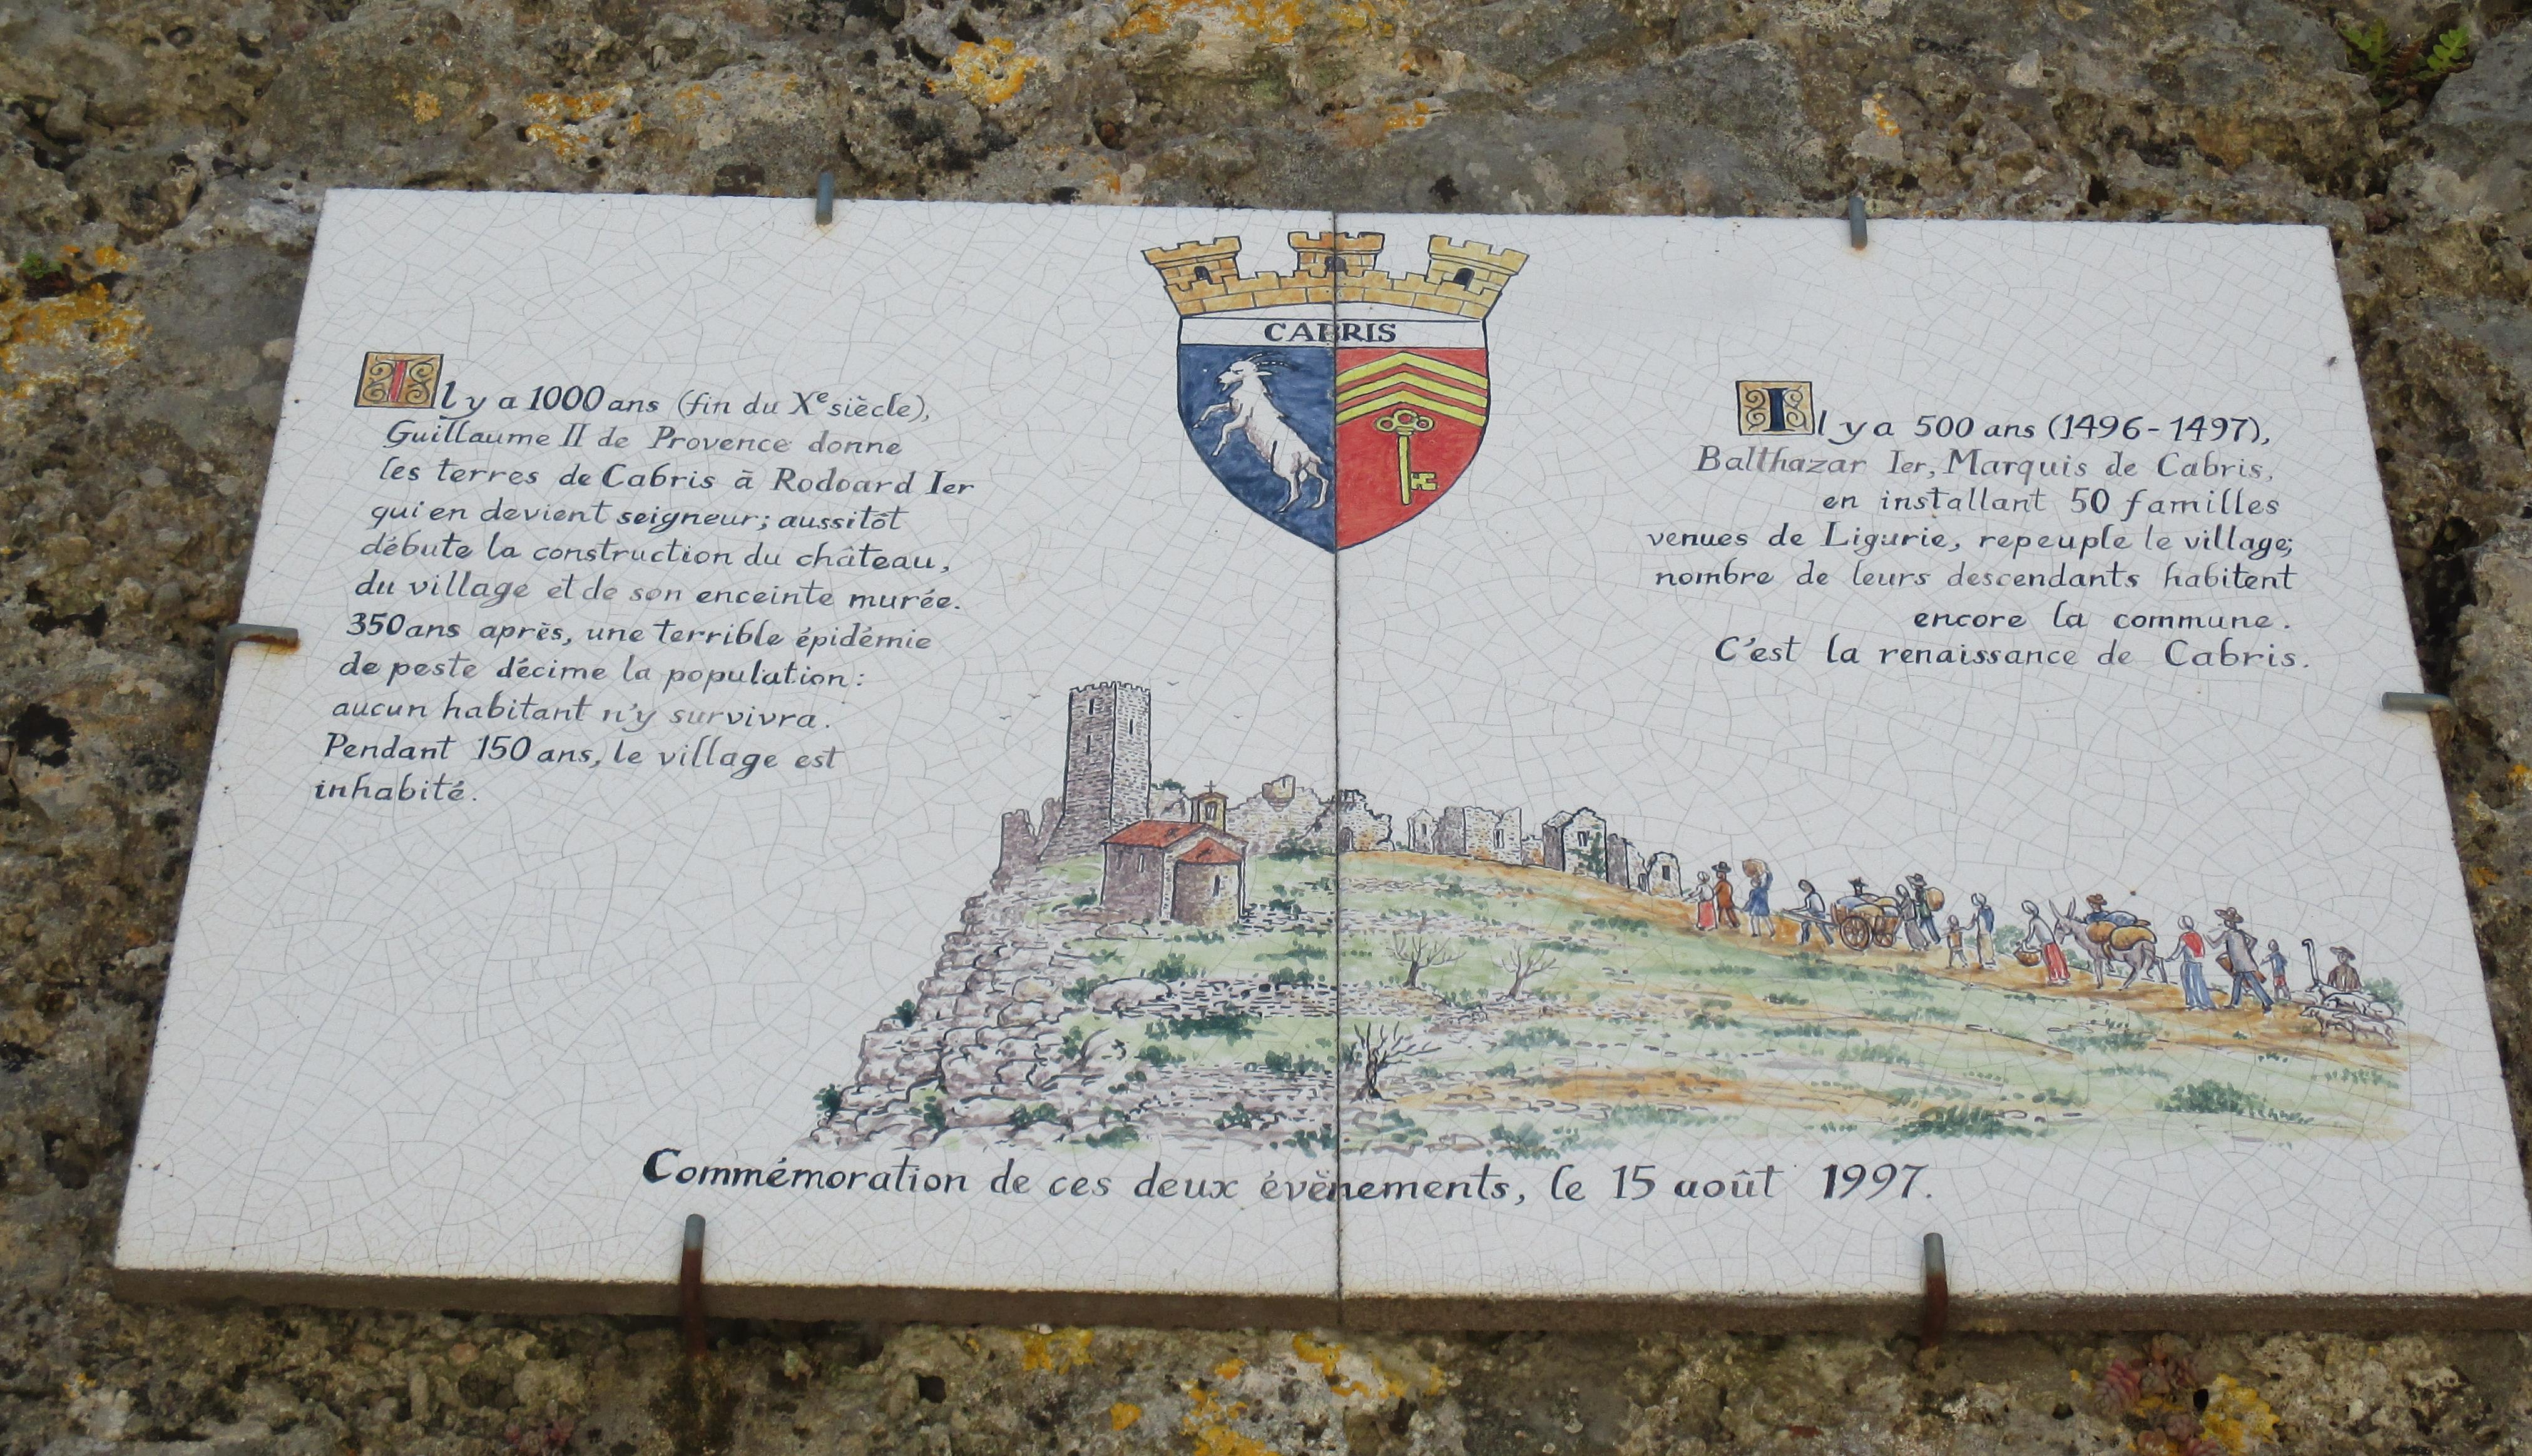 CABRIS
Il y a 1000 ans (fin du Xe siècle),
Guillaume II de Provence donne
les terres de Cabris à Rodoard Ier
qui en devient seigneur; aussitôt
débute la construction du château,
du village et de son enceinte murée.
350 ans après, une terrible épidémie
de peste décime la population:
aucun habitant n'y survivra.
Pendant 150 ans, le village est
inhabité.
Il y a 500 ans (1496-1497),
Balthazar Ier, Marquis de Cabris,
en installant 50 familles
venues de Ligurie, repeuple le village;
nombre de leurs descendants habitent
encore la commune.
C'est la renaissance de Cabris.
Commémoration de ces deux évènements, le 15 août 1997.